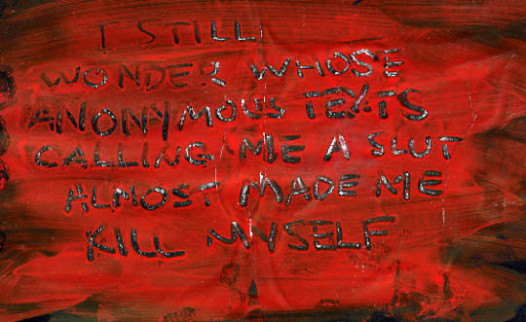 I STILL
WONDER WHOSE
ANONYMOUS TEXTS
CALLING ME A SLUT
ALMOST MADE ME
KILL MYSELF